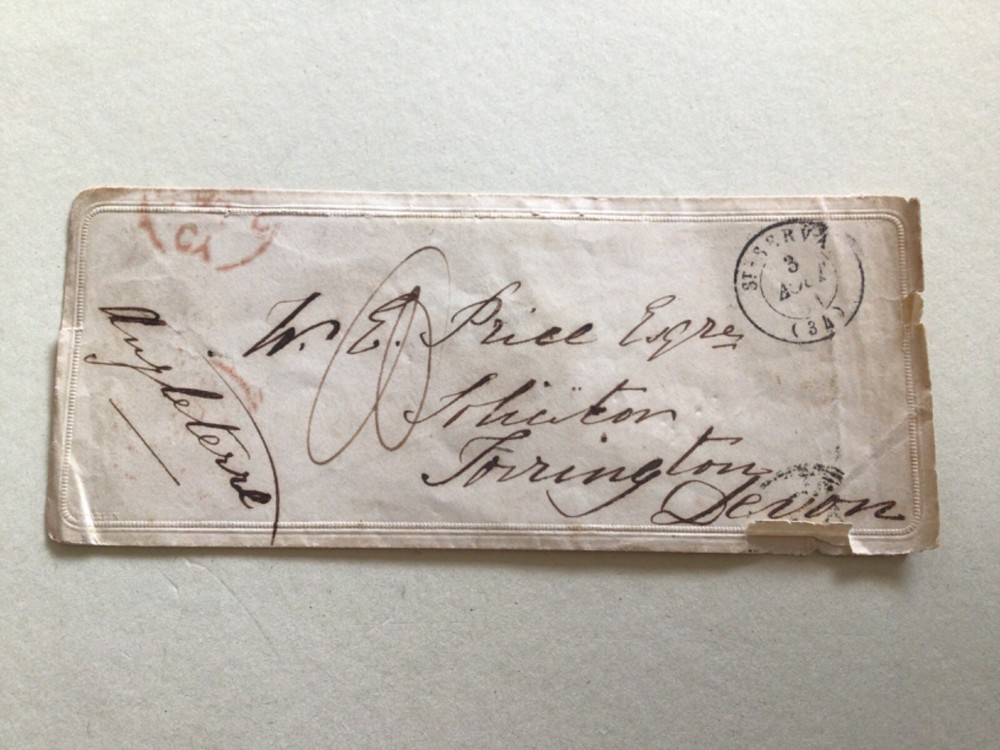 W. E. Price Esqre
Solicitor
Torrington
Devon
Angleterre
ST-SERVA
3
AOUT
(34)